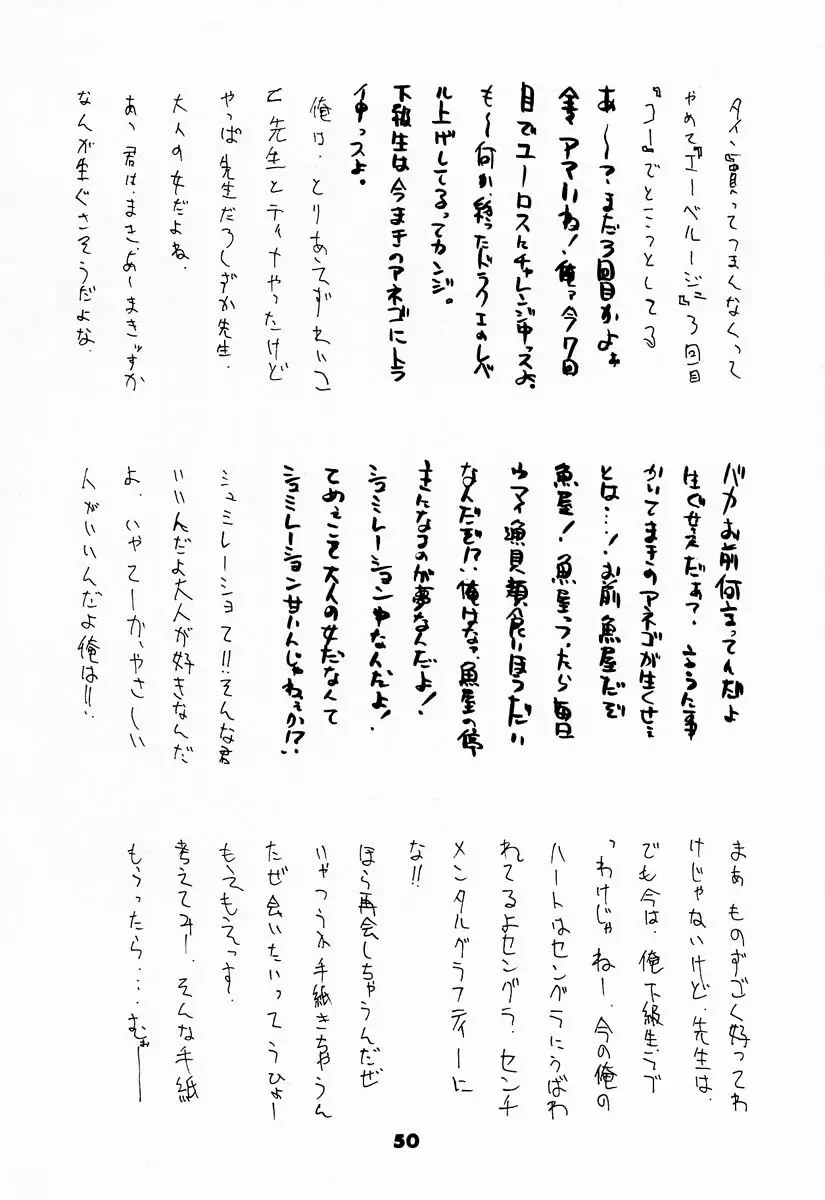 タイン買ってつまんなくって
やめて『エーベルージュ』3回目
『コー』でところとしてる
あ〜?まだ3回目かよぉ
アマいね!俺ァ今7回
目でユーロスにチャレンジ中っスよ。
も〜何か、終ったドラクエのレベ
ル上げしてるってカンジ。
下級生は今まきのアネゴにトラ
イ中っスよ。
俺は、とりあえずれいこ
と先生とティナやったけど
やっぱ先生だろしずか先生。
大人の女だよね。
あ、君は、まさ、あ〜まきッすか
なんか生ぐさそうだよな。
バカお前何言ってんだよ
生ぐせえだぁ?言うた事
かいてまきのアネゴが生くせえ
とは…!お前魚屋だぞ
魚屋!魚屋っつったら毎日
ウマイ漁貝類食いほうだい
なんだぞ!?俺はなァ、魚屋の停
主になるのが夢なんだよ!
シュミレーション中なんだよ!
てめぇこそ大人の女だなんて
シュミレーション甘いんじゃねぇか!?
シュミレーショて!!そんな君
いいんだよ大人が好きなんだ
よ、いやてーか、やさしい
人がいいんだよ俺は!!
まあものすごく好ってわ
けじゃないけど、先生は、
でも今は、俺下級生って
っわけじゃねー、今の俺の
ハートはセングラにうばわ
れてるよセングラ、センチ
メンタルグラフティーに
な!!
ほら再会しちゃうんだぜ
いやつうか手紙きちゃうん
だぜ会いたいってうひょー
もえもえっす。
考えてみー、そんな手紙
もらったら…、むぉー
50